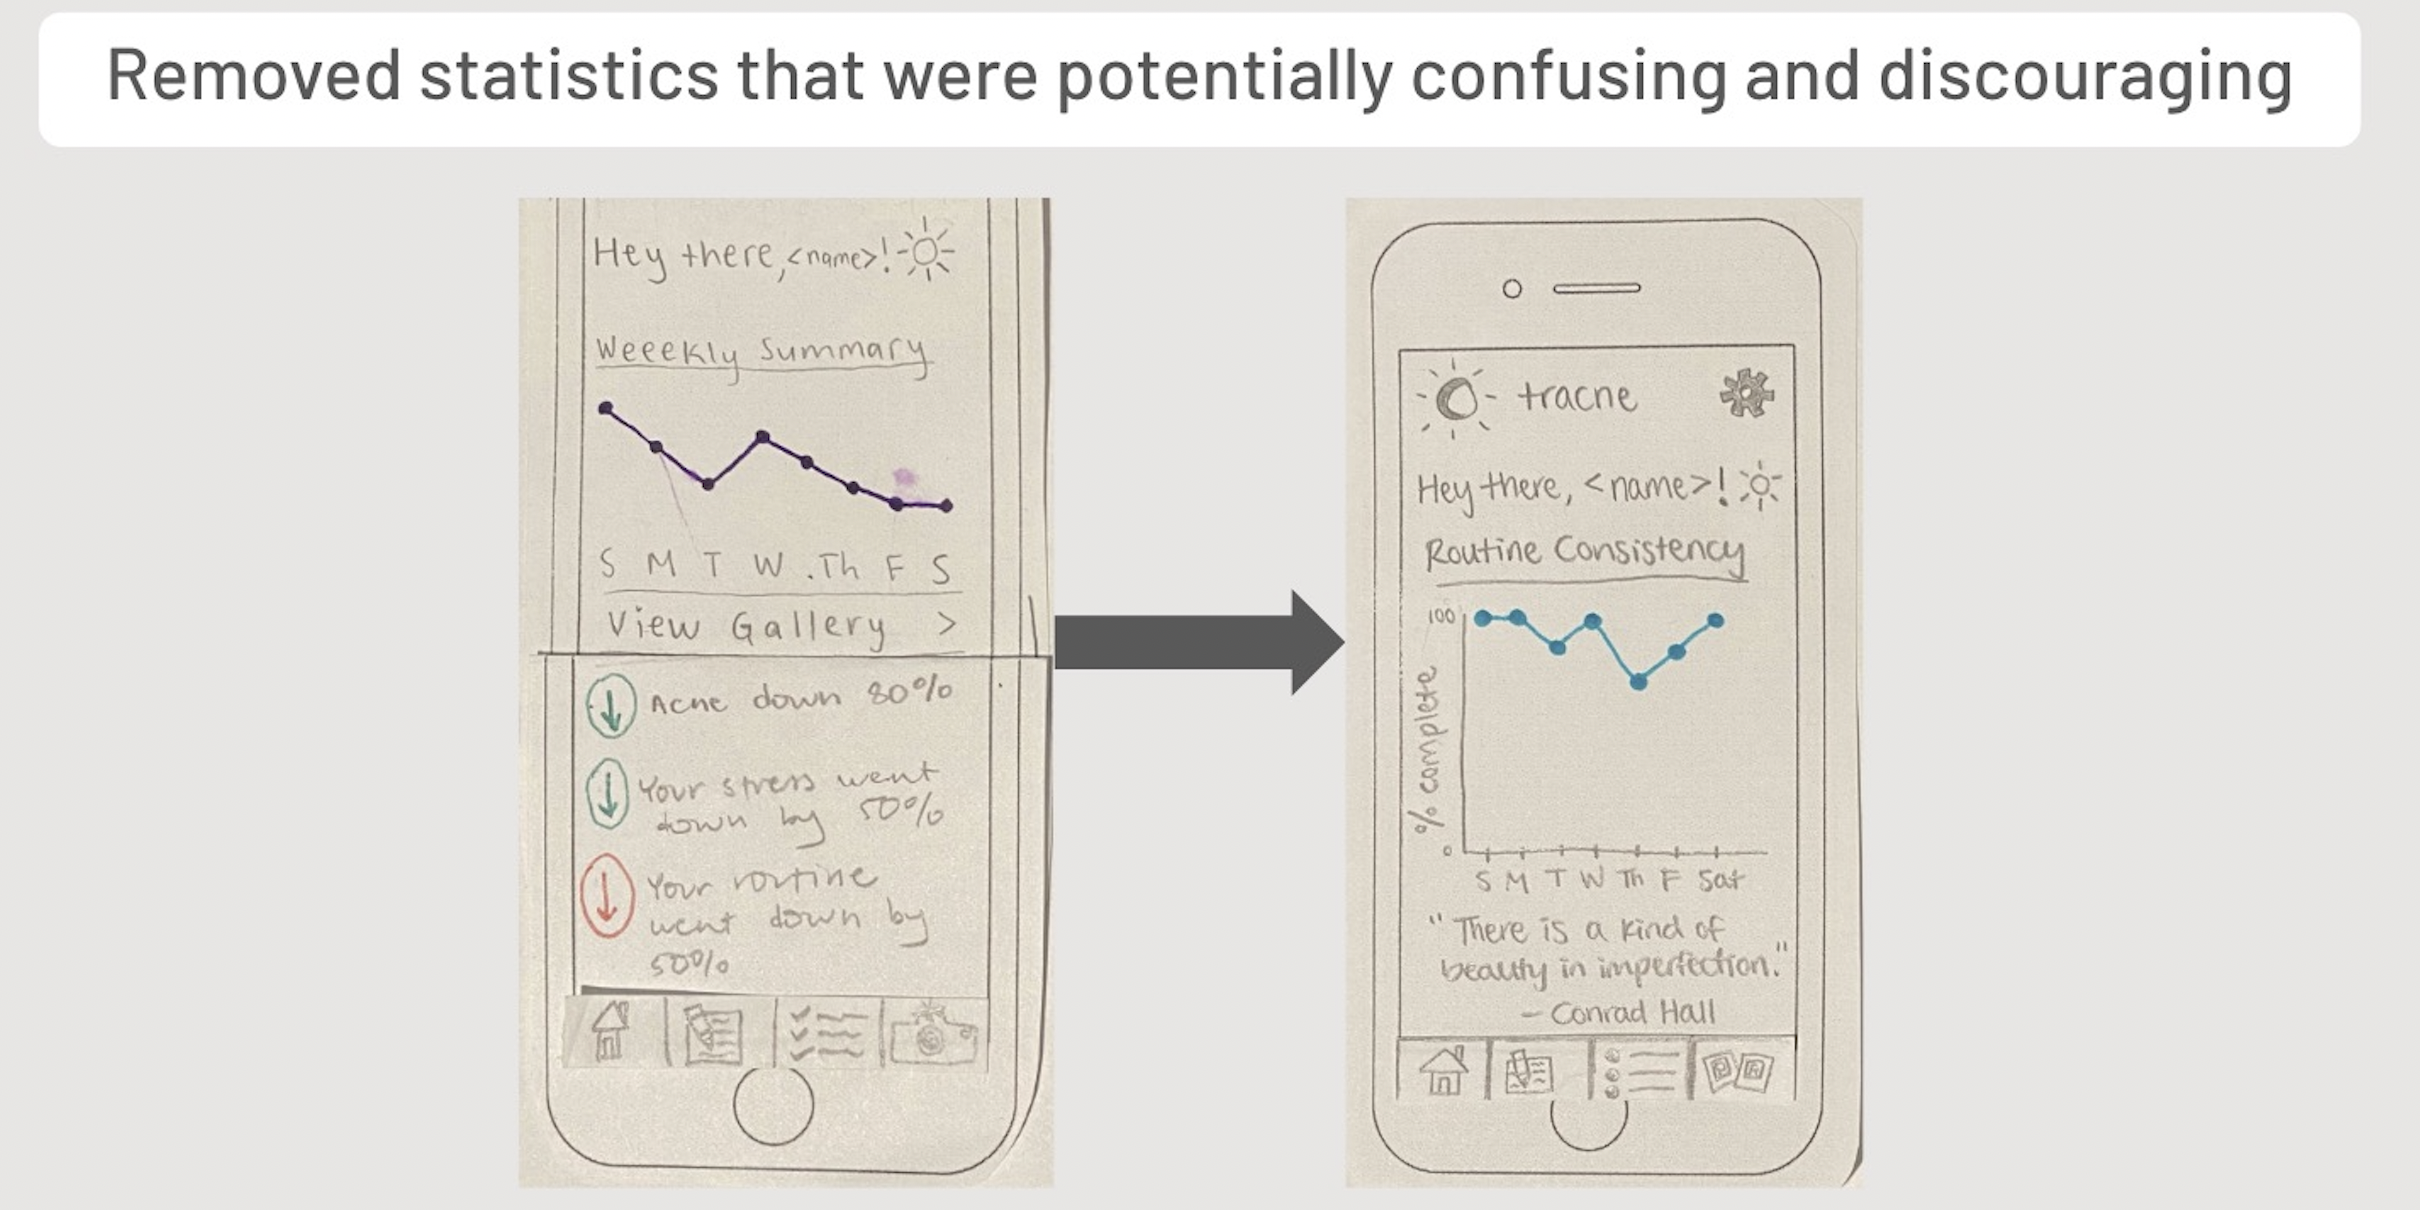 Removed statistics that were potentially confusing and discouraging
Hey there, <name>!
Weeekly Summary
S M T W .Th F S
View Gallery >
Acne down 80%
Your stress went
down by 50%
Your routine
went down by
50%
tracne
Hey there, <name>!
Routine Consistency
100
% complete
0
S M T W Th F Sat
"There is a kind of
beauty in imperfection."
- Conrad Hall